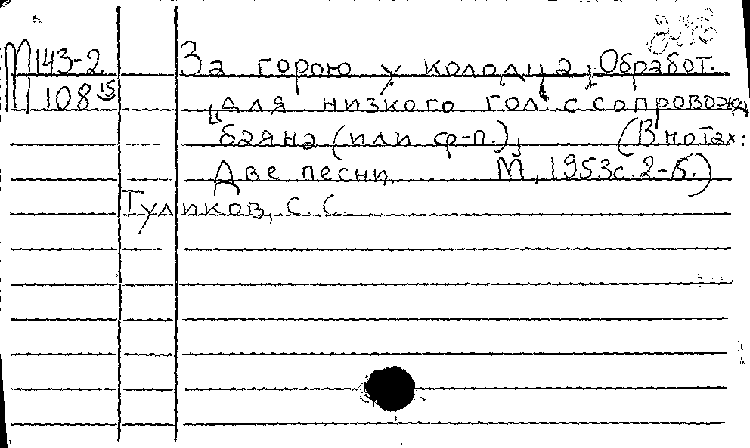 М143-2 За горою у колодца; Обработ.
108 15 для низкого гол. с сопровожд
баяна (или ф-п.) (В нотах:
Две песни М, 1953 с. 2-5.)
Туликов, С. С.